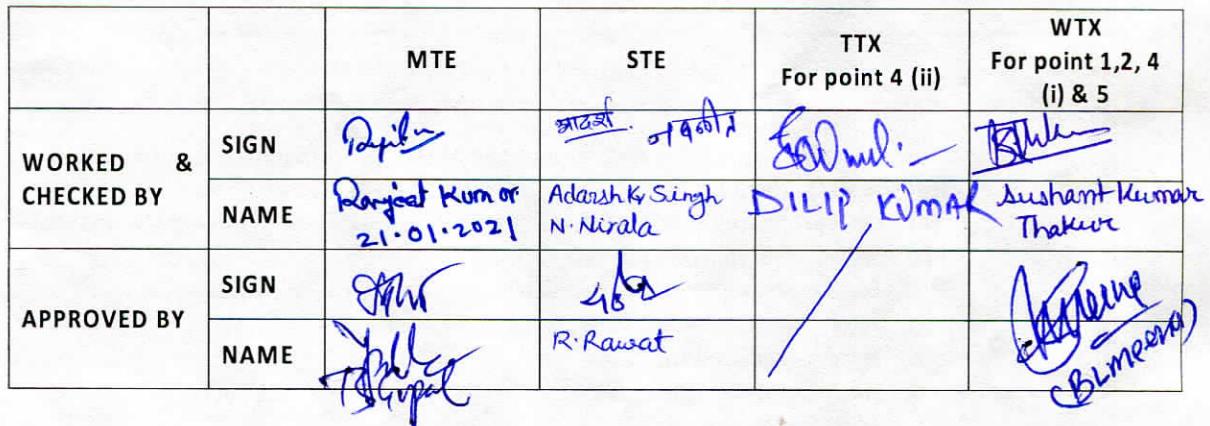 MTE STE TTX WTX
For point 4 (ii) For point 1,2, 4
(i) & 5
WORKED & CHECKED BY
SIGN
आदर्श
NAME
Ranjeet Kumar
21.01.2021
Adarsh Kr Singh
N. Nirala
DILIP KUMAR
Sushant Kumar
Thakur
APPROVED BY
SIGN
NAME
R. Rawat
(BL Meena)